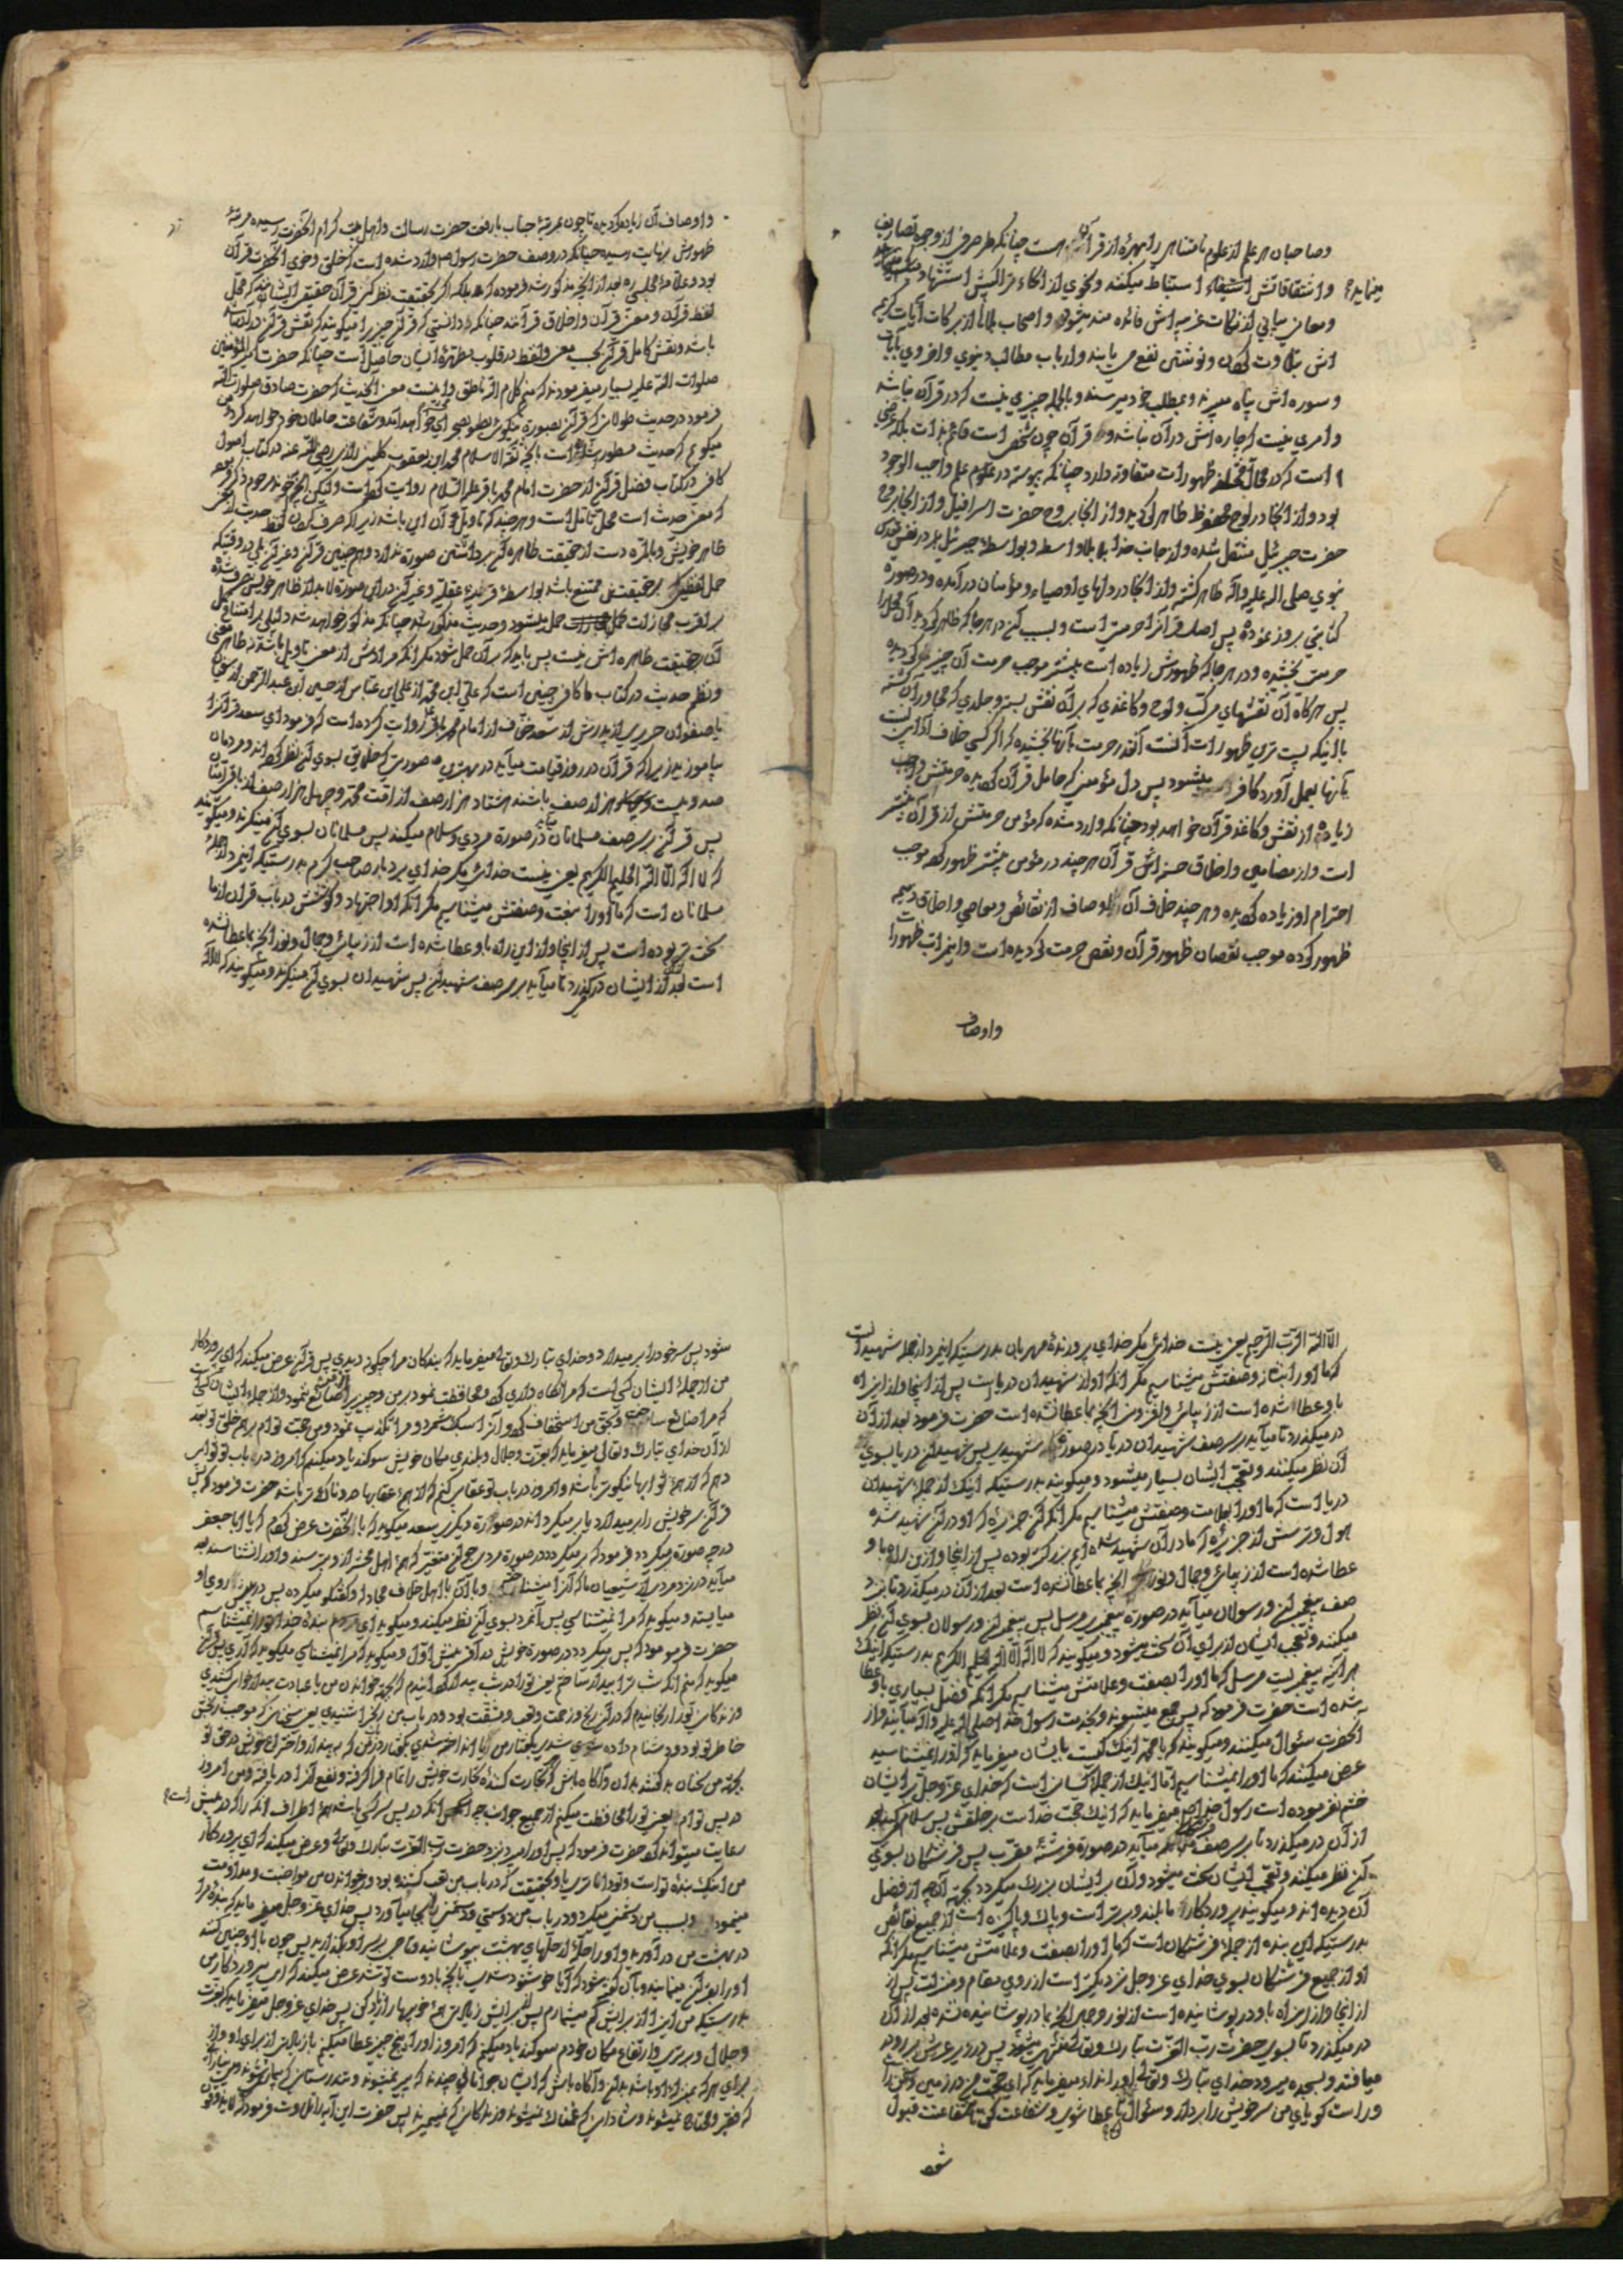 وصاحبان هر علم از علوم نامتناهی را بهرهٔ از قرآن هست چنانکه طرحرفی از وجوه تصاریف
واشتقاقاتش استنباط میکنند ونحوی از انحاء تراکیبش استشهاد
مینماید
ومعانی بیانی از نکات غریبه اش فائده مند میشود واصحاب بلایا از برکات آیات کریم
اش بتلاوت کردن ونوشتن نفع می یابند وارباب مطالب دنیوی واخروی بآیات
وسوره اش پناه میبرند وبمطلب خود میرسند وبالجمله چیزی نیست که در قرآن نباشد
وامری نیست که چاره اش در آن نباشد و قرآن چون شخصی است قائم بذات بلکه عرضی
است که در محال مختلفه ظهورات متفاوته دارد چنانکه پیوسته در علوم علم واجب الوجود
بود واز آنجا در لوح محفوظ ظاهر گردید واز آنجا بر روح حضرت اسرافیل واز آنجا بر روح
حضرت جبرئیل منتقل شده واز جانب خدا بلا واسطه وبواسطهٔ جبرئیل بر نفس مقدس
نبوی صلی الله علیه وآله ظاهر گشته واز آنجا در دلهای اوصیاء ومؤمنان درآمده ودر صورة
کتابتی بروز نموده پس اصل قرآن را حرمتی است وبسبب آن در هر جا که ظاهر گردید آن محل را
حرمت بخشیده ودر هر جا که ظهورش زیاده است بیشتر موجب حرمت آن چیز گردیده
پس هر گاه آن نقشهای مرکب ولوح وکاغذی که بر آن نقش بسته وجلدی که مجاور آن گشته
با اینکه پست ترین ظهورات آنست آنقدر حرمت بآنها بخشیده که اگر کسی خلاف آدابی نسبت
بآنها بعمل آورد کافر میشود پس دل مؤمنی که حامل قرآن گردیده حرمتش واجب
زیاده از نقش وکاغذ قرآن خواهد بود چنانکه وارد شده که مؤمن حرمتش از قرآن بیشتر
است واز مضامین واخلاق حسنه اش قرآن هر چند در مؤمن بیشتر ظهور کند موجب
احترام او زیاده گردیده وهر چند خلاف آن اوصاف از نقائص ومعاصی واخلاق ذمیمه
ظهور کرده موجب نقصان ظهور قرآن ونقص حرمت گردیده است واین مراتب ظهورات
واوصاف
واوصاف آن زیاده گردیده تا چون بمرتبهٔ جناب با رفعت حضرت رسالت واهل بیت کرام آنحضرت رسیده مرتبهٔ
ظهورش بنهایت رسیده چنانکه در وصف حضرت رسول ص وارد شده است که خلق وخوی آنحضرت قرآن
بود وعلامهٔ مجلسی ره بعد از آنچه مذکور شد فرموده که بلکه اگر بحقیقت نظر کنی قرآن حقیقی ایشانند که محل
لفظ قرآن ومعنی قرآن واخلاق قرآنند چنانکه دانستی که قرآن چیزی را میگویند که نقش قرآن در آن
باشد ونقش کامل قرآن بحسب معنی ولفظ در قلوب مطهرهٔ ایشان حاصل است چنانکه حضرت امیر المؤمنین
صلوات الله علیه بسیار میفرمودند که منم کلام الله ناطق واینست معنی آنحدیث که حضرت صادق صلوات الله
فرمود در حدیث طولانی که قرآن بصورة نیکوئی بمحشر خواهد آمد وشفاعت حاملان خود خواهد کرد
میگویم که حدیث مسطور است بآنچه ثقة الاسلام محمد ابن یعقوب کلینی رازی رضی الله عنه در کتاب اصول
کافی در کتاب فضل قرآن از حضرت امام محمد باقر علیه السلام روایت کرده است ولیکن آنچه آخوند مرحوم ذکر نموده
که معنی حدیث است محل تأمل است وهر چند که تأویل آن این باشد زیرا که صرف کردن لفظ حدیث از معنی
ظاهر خویش وبالمرّه دست از حقیقت ظاهره آن برداشتن صورة ندارد وهم چنین قرآن وغیر آن بلی در وقتیکه
حمل لفظ بر حقیقتش ممتنع باشد بواسطهٔ قرینهٔ عقلیه وغیر آن در این صورة لابد از ظاهر خویش صرف شده
بر اقرب مجازات حمل میشود وحدیث مذکور چنانکه مذکور خواهد شد دلیلی بر امتناع حمل
آن بر حقیقت ظاهره اش نیست پس باید که بر آن حمل شود مگر آنکه مرادش از معنی تأویل باشد نه ظاهر معنی
ونظم حدیث در کتاب کافی چنین است که علی ابن محمد از علی ابن عباس از حسین ابن عبد الرحمن از سفیان
یا صفوان حریری از پدرش از سعد خفاف از امام محمد باقر ع روایت کرده است که فرمود ای سعد قرآن را
بیاموزید زیرا که قرآن در روز قیامت میآید در بهترین صورتی که خلایق بسوی آن نظر کرده اند ومردمان
صد وبیست هزار صف باشند هشتاد هزار صف از امّت محمد وچهل هزار صف از باقی امّتان
پس قرآن بر سر صف مسلمانان در صورة مردی وسلام میکند پس مسلمانان بسوی آن مینگرند ومیگویند
که لا اله الا الله الحلیم الکریم یعنی نیست خدائی مگر خدای بردبار صاحب کرم بدرستیکه این مرد از جملهٔ
مسلمانان است که ما او را بنعت وصفتش میشناسیم مگر آنکه او اجتهاد وکوشش در باب قرآن از ما
سخت تر بوده است پس از اینجا واز این راه باو عطا شده است از زیبائی وجمال ونور آنچه بما عطا نشده
است بعد از آن از ایشان درگذرد تا میآید بر سر صف شهیدان پس شهیدان بسوی آن مینگرند ومیگویند که لا اله
الا الله الرب الرحیم یعنی نیست خدائی مگر خدای پرورندهٔ مهربان بدرستیکه این مرد از جمله شهیدان است
که ما او را بنشان وصفتش میشناسیم مگر آنکه او از شهیدان دریا است پس از اینجا واز این راه
باو عطا شده است از زیبائی وافزونی آنچه بما عطا نشده است حضرت فرمود بعد از آن
در میگذرد تا میآید بر سر صف شهیدان دریا در صورة شهید پس شهیدان دریا بسوی
آن نظر میکنند وتعجب ایشان بسیار میشود ومیگویند بدرستیکه اینک از جمله شهیدان
دریا است که ما او را بعلامت وصفتش میشناسیم مگر آنکه آن جزیرهٔ که او در آن شهید شده
هول وترسش از جزیرهٔ که ما در آن شهید شده ایم بزرگتر بوده پس از اینجا وازین راه باو
عطا شده است از زیبائی وجمال ونور آنچه بما عطا نشده است بعد از آن در میگذرد تا بنزد
صف پیغمبران ورسولان میآید در صورة پیغمبری مرسل پس پیغمبران ورسولان بسوی آن نظر
میکنند وتعجب ایشان از برای آن سخت میشود ومیگویند که لا اله الا الله الحلیم الکریم بدرستیکه اینک
هر آینه پیغمبریست مرسل که ما او را بصفت وعلامتش میشناسیم مگر آنکه فضل بسیاری باو عطا
شده است حضرت فرمود که پس جمع میشوند وبخدمت رسول خدا صلی الله علیه وآله میآیند واز
آنحضرت سئوال میکنند ومیگویند که یا محمد اینک کیست بایشان میفرماید که او را نمیشناسید
عرض میکنند که ما او را نمیشناسیم اما اینک از جمله کسانی است که خدای عزّ وجل بر ایشان
خشم نفرموده است رسول خدا ص میفرماید که اینک حجت خداست بر خلقش پس سلام میکند وبعد
از آن در میگذرد تا بر سر صف فرشتگان میآید در صورة فرشتهٔ مقرب پس فرشتگان بسوی
آن نظر میکنند وتعجب ایشان سخت میشود وآن بر ایشان بزرگ میگردد بجهة آنچه از فضل
آن دیده اند ومیگویند پروردگار ما بلند وبرتر است وپاک وپاکیزه است از جمیع نقائص
بدرستیکه این بنده از جملهٔ فرشتگان است که ما او را بصفت وعلامتش میشناسیم مگر آنکه
او از جمیع فرشتگان بسوی خدای عز وجل نزدیکتر است از روی مقام ومنزلت پس از
از اینجا واز این راه باو در پوشانیده است از نور وجمال آنچه بما در پوشانیده نشده بعد از آن
در میگذرد تا بسوی حضرت رب العزت تبارک وتعالی منتهی میشود پس در زیر عرش بر رو در
میافتد وبسجده میرود خدای تبارک وتعالی او را نداء میفرماید که ای حجت من در زمین وسخن
وراست گویای من سر خویش را بردار وسئوال کن تا عطا شوی وشفاعت کن تا شفاعتت قبول
شود
شود پس سر خود را بر میدارد وخدای تبارک وتعالی میفرماید که بندگان مرا چگونه دیدی پس قرآن عرض میکند که ای پروردگار
من از جملهٔ ایشان کسی است که مرا نگاه داری کرد ومحافظت نمود بر من وچیزی را ضائع ننمود واز جملهٔ ایشان کسی است
که مرا ضائع ساخت وبحق من استخفاف کرد وآنرا سبک شمرد ومرا تکذیب نمود ومن حجت توام بر همه خلق تو بعد
از آن خدای تبارک وتعالی میفرماید که بعزّت وجلال وبلندی مکان خویش سوگند یاد میکنم که امروز در باب تو ثوابی
دهم که از همهٔ ثوابها نیکوتر باشد وامروز در باب تو عقابی کنم که از همهٔ عقابها دردناک تر باشد حضرت فرمود که پس
قرآن سر خویش را بر میدارد یا بر میگرداند در صورة دیگر سعد میگوید که با آنحضرت عرض کردم که یا ابا جعفر
در چه صورة میگردد فرمود که بر میگردد در صورة مردی متغیّر که همهٔ اهل محشر از او بترسند واو را نشناسند پس
میآید در نزد مردی از شیعیان ما که آنرا میشناخته وبا آن با اهل خلاف مجادله وگفتگو میکرده پس در پیش روی او
میایستد ومیگوید که مرا نمیشناسی پس آنمرد بسوی آن نظر میکند ومیگوید ای بندهٔ خدا تو را نمیشناسم
حضرت فرمود که پس میگردد در صورة خویش در آفرینش اوّل ومیگوید که مرا نمیشناسی میگوید که آری پس قرآن
میگوید که منم آنکه شب ترا بیدار ساختم یعنی تو را در شب بیدار گردانیدم که بجهة خواندن من یا عبادت بیدار خوابی کشیدی
وزندگانی تو را رنجانیدم که در آن رنج وزحمت وتعب ومشقت بود ودر باب من رنجرا شنیدی یعنی سخنانی که موجب رنجش
خاطر تو بود ودشنام داده شدی
بجهة من سخنان بد گفتند بدان وآگاه باش که هر تجارت کنندهٔ تجارت خویش را تمام فرا گرفته ونفع آنرا دریافته ومن امروز
در پس توام یعنی تو را محافظت میکنم از جمیع جوانب چه آنکس آنکه در پس سر کسی باشد همهٔ اطراف آنکه را که در پیش است
رعایت میتواند کرد حضرت فرمود که پس او را میبرد نزد حضرت رب العزت تبارک وتعالی وعرض میکند که ای پروردگار
من اینک بندهٔ تو است وتو داناتری باو بحقیقت که در باب من تعب کشنده بود ودر خواندن من مواظبت ومداومت
مینمود وبسبب من دشمنی میکرد ودر باب من دوستی ودشمنی بجا میآورد پس خدای عزّ وجل میفرماید که بندهٔ مرا
در بهشت من در آورید واو را حلّهٔ از حلّهای بهشت بپوشانید وتاجی بر سر او بگذارید پس چون با او چنین کنند
او را بر قرآن مینمایند وبآن گفته میشود که آیا خوشنود شدی بآنچه با دوست تو شد عرض میکند که ای پروردگار من
بدرستیکه من این را از برایش کم میشمارم پس بر برایش زیادتی همهٔ خوبیها را زیاد کن پس خدای عزّ وجل میفرماید که بعزت
وجلال وبرتری وارتفاع مکان خودم سوگند یاد میکنم که امروز او را پنج چیز عطا میکنم با زیادتی از برای او واز
برای هر که بمنزلهٔ او باشد بدان وآگاه باش که ایشان جوانانی چندند که پیر نمیشوند وتندرستانی که بیمار نشوند وبی نیازانی
که فقیر ومحتاج نمیشوند وشادانی که غمناک نمیشوند وزندگانی که نمیمیرند پس حضرت این آیه را تلاوت فرمود که لا یذوقون